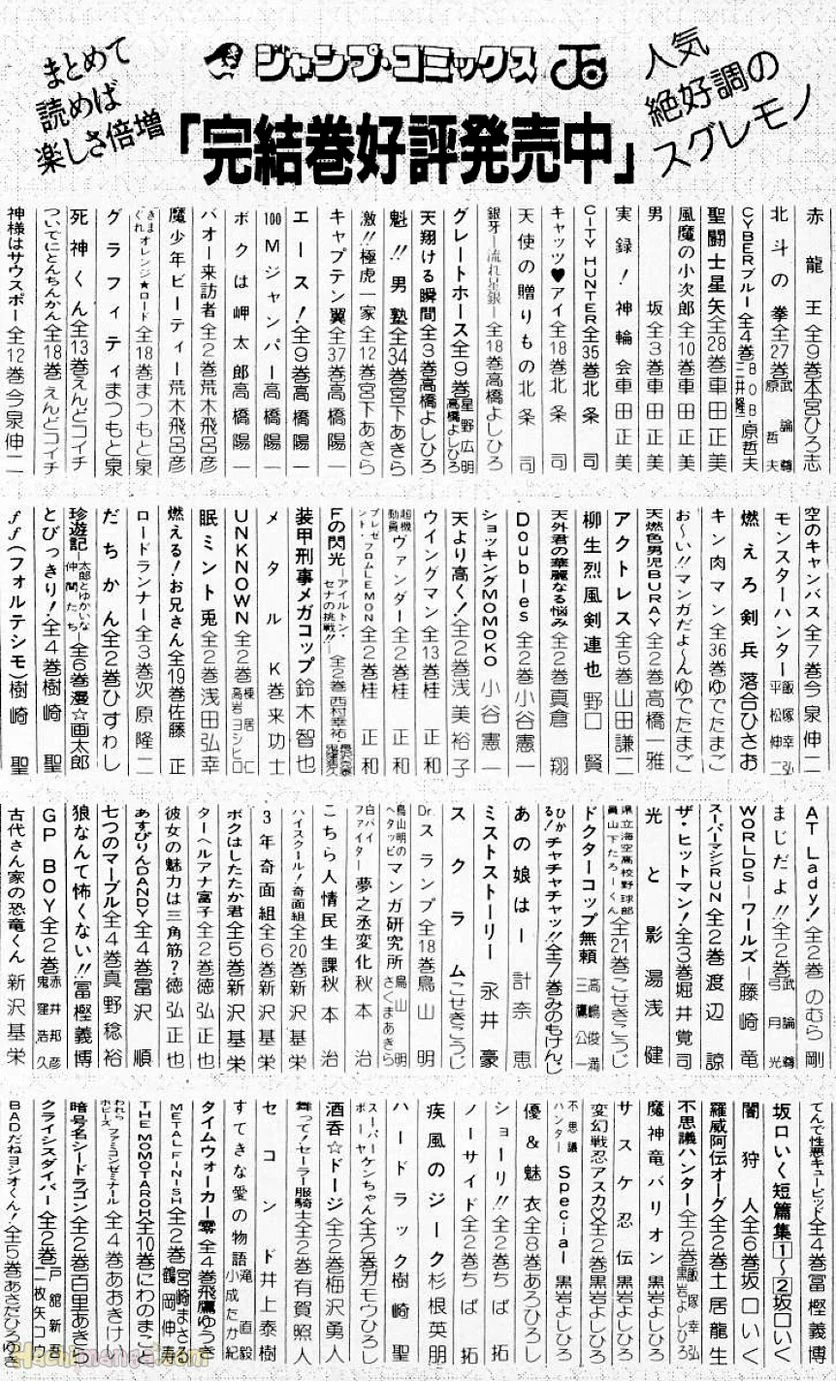 まとめて
読めば
楽しさ倍増
ジャンプ・コミックス
人気
絶好調の
スグレモノ
「完結巻好評発売中」
赤龍王全9巻本宮ひろ志
北斗の拳全27巻武論尊 原哲夫
CYBERブルー全4巻BOB 三井隆一 原哲夫
聖闘士星矢全28巻車田正美
風魔の小次郎全10巻車田正美
男坂全3巻車田正美
実録!神輪会車田正美
CITY HUNTER全35巻北条司
キャッツ♥アイ全18巻北条司
天使の贈りもの北条司
銀牙―流れ星銀―全18巻高橋よしひろ
グレートホース全9巻星野広明 高橋よしひろ
天翔ける瞬間全3巻高橋よしひろ
魁!!男塾全34巻宮下あきら
激!!極虎一家全12巻宮下あきら
キャプテン翼全37巻高橋陽一
エース!全9巻高橋陽一
100Mジャンパー高橋陽一
ボクは岬太郎高橋陽一
バオー来訪者全2巻荒木飛呂彦
魔少年ビーティー荒木飛呂彦
きまぐれオレンジ★ロード全18巻まつもと泉
グラフィティまつもと泉
死神くん全13巻えんどコイチ
ついでにとんちんかん全18巻えんどコイチ
神様はサウスポー全12巻今泉伸二
空のキャンバス全7巻今泉伸二
モンスターハンター飯塚幸弘 平松伸二
燃えろ剣兵落合ひさお
キン肉マン全36巻ゆでたまご
お〜い!!マンガだよ〜んゆでたまご
天燃色男児BURAY全2巻高橋一雅
アクトレス全5巻山田謙二
柳生烈風剣連也野口賢
天外君の華麗なる悩み全2巻真倉翔
Doubles全2巻小谷憲一
ショッキングMOMOKO小谷憲一
天より高く!全2巻浅美裕子
ウイングマン全13巻桂正和
超機動員ヴァンダー全2巻桂正和
プレゼント・フロムLEMON全2巻桂正和
Fの閃光―アイルトン・セナの挑戦!!―全2巻西村幸祐・
装甲刑事メガコップ鈴木智也
メタルK巻来功士
UNKNOWN全2巻棟居仁 高岩ヨシヒロ
眠ミント兎全2巻浅田弘幸
燃える!お兄さん全19巻佐藤正
ロードランナー全3巻次原隆二
だちかん全2巻ひすわし
珍遊記―太郎とゆかいな仲間たち―全6巻漫☆画太郎
とびっきり!全4巻樹崎聖
ff(フォルテシモ)樹崎聖
AT Lady!全2巻のむら剛
まじだよ!!全2巻武論尊 弓月光
WORLDS―ワールズ―藤崎竜
ザ・ヒットマン!全3巻堀井覚司
スーパーマシンRUN全2巻渡辺諒
光と影湯浅健
県立海空高校野球部員山下たろーくん全21巻こせきこうじ
ドクターコップ無頼高嶋俊満 三鷹公一
ひかる!チャチャチャッ!!全7巻みのもけんじ
あの娘は―計奈恵
ミストストーリー永井豪
スクラムこせきこうじ
Dr.スランプ全18巻鳥山明
鳥山明のヘタッピマンガ研究所鳥山明 さくまあきら
白バイファイター夢之丞変化秋本治
こちら人情民生課秋本治
ハイスクール!奇面組全20巻新沢基栄
3年奇面組全6巻新沢基栄
ボクはしたたか君全5巻新沢基栄
ターヘルアナ富子全2巻徳弘正也
彼女の魅力は三角筋?徳弘正也
あすぴりんDANDY全4巻富沢順
七つのマーブル全4巻真野稔裕
狼なんて怖くない!!冨樫義博
GP BOY全2巻赤井邦彦 鬼窪浩久
古代さん家の恐竜くん新沢基栄
てんで性悪キューピッド全4巻冨樫義博
坂口いく短篇集1〜2坂口いく
闇狩人全6巻坂口いく
羅威阿伝オーグ全2巻土居龍生
不思議ハンター全2巻飯塚幸弘 黒岩よしひろ
魔神竜バリオン黒岩よしひろ
サスケ忍伝黒岩よしひろ
変幻戦忍アスカ♡全2巻黒岩よしひろ
不思議ハンターSpecial黒岩よしひろ
優&魅衣全8巻あろひろし
ショーリ!!全2巻ちば拓
ノーサイド全2巻ちば拓
疾風のジーク杉根英朋
ハードラック樹崎聖
スーパーボーヤケンちゃん全2巻ガモウひろし
酒呑☆ドージ全2巻梅沢勇人
舞って!セーラー服騎士全2巻有賀照人
セコンド井上泰樹
すてきな愛の物語滝直毅 小成たか紀
タイムウォーカー零全4巻飛鷹ゆうき
METAL FINISH全2巻宮崎まさる 鶴岡伸寿
THE MOMOTAROH全10巻にわのまこと
われらホビーズファミコンゼミナール全4巻あおきけい
暗号名シードラゴン全2巻百里あきら
クライシスダイバー全2巻戸舘新吾 二枚矢コウ
BADだねヨシオくん!全5巻あさだひろゆき